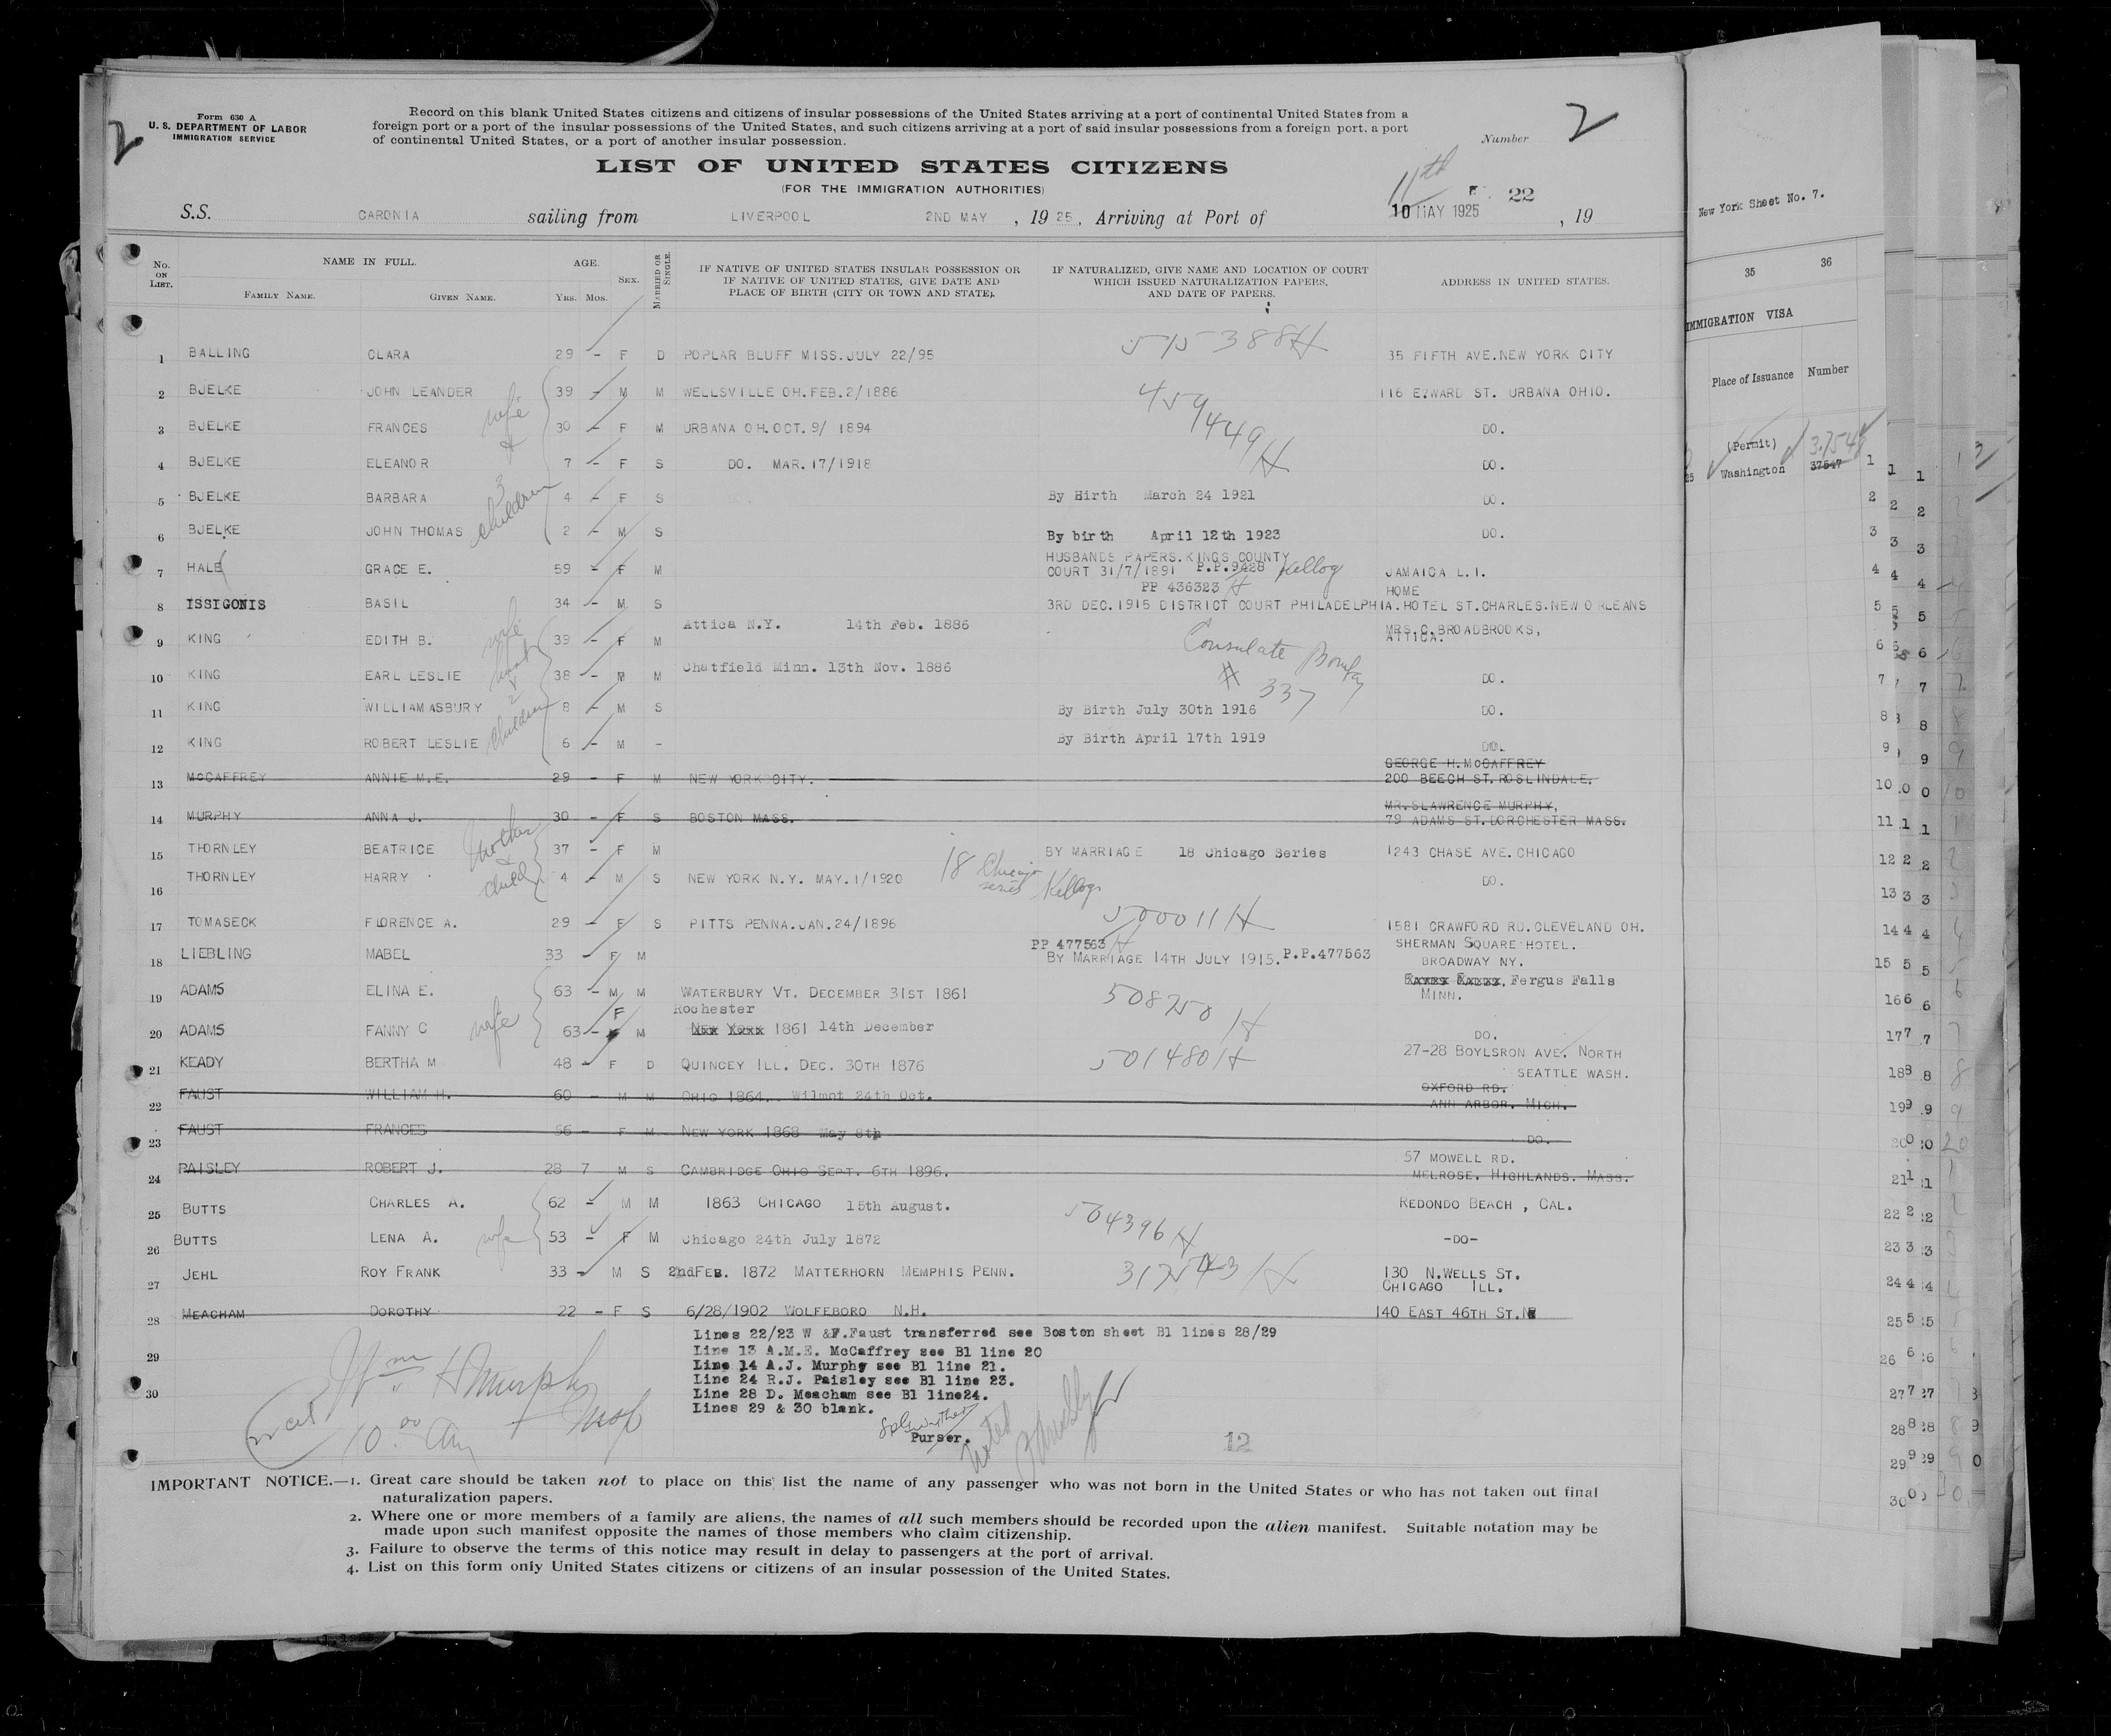 Form 630 A
U. S. DEPARTMENT OF LABOR
IMMIGRATION SERVICE
2
Record on this blank United States citizens and citizens of insular possessions of the United States arriving at a port of continental United States from a
foreign port or a port of the insular possessions of the United States, and such citizens arriving at a port of said insular possessions from a foreign port, a port
of continental United States, or a port of another insular possession.
Number 2
LIST OF UNITED STATES CITIZENS
(FOR THE IMMIGRATION AUTHORITIES)
S.S. CARONIA sailing from LIVERPOOL 2ND MAY , 19 25, Arriving at Port of 11th 10 MAY 1925 22 , 19
No. ON LIST.
NAME IN FULL.
FAMILY NAME. GIVEN NAME.
AGE.
YRS. MOS.
SEX.
MARRIED OR SINGLE.
IF NATIVE OF UNITED STATES INSULAR POSSESSION OR
IF NATIVE OF UNITED STATES, GIVE DATE AND
PLACE OF BIRTH (CITY OR TOWN AND STATE).
IF NATURALIZED, GIVE NAME AND LOCATION OF COURT
WHICH ISSUED NATURALIZATION PAPERS,
AND DATE OF PAPERS.
ADDRESS IN UNITED STATES.
1 BALLING CLARA 29 - F D POPLAR BLUFF MISS.JULY 22/95 515388H 35 FIFTH AVE.NEW YORK CITY
2 BJELKE JOHN LEANDER 39 - M M WELLSVILLE OH.FEB.2/1886 459449H 116 E.WARD ST. URBANA OHIO.
3 BJELKE FRANCES wife & 30 - F M URBANA OH.OCT.9/ 1894 DO.
4 BJELKE ELEANOR 7 - F S DO. MAR.17/1918 DO.
5 BJELKE BARBARA 3 children 4 - F S By Birth March 24 1921 DO.
6 BJELKE JOHN THOMAS 2 - M S By birth April 12th 1923 DO.
7 HALE GRACE E. 59 - F M HUSBANDS PAPERS.KINGS COUNTY
COURT 31/7/1891 P.P.9428 Kellog JAMAICA L.I.
PP 436323 H HOME
8 ISSIGONIS BASIL 34 - M S 3RD DEC.1915 DISTRICT COURT PHILADELPHIA.HOTEL ST.CHARLES.NEW ORLEANS
9 KING EDITH B. wife 39 - F M Attica N.Y. 14th Feb. 1886 MRS.C.BROADBROOKS,
ATTICA.
Consulate Bombay
# 337
10 KING EARL LESLIE 38 - M M Chatfield Minn. 13th Nov. 1886 DO.
11 KING WILLIAM ASBURY 2 children 8 - M S By Birth July 30th 1916 DO.
12 KING ROBERT LESLIE 6 - M - By Birth April 17th 1919 DO.
13 McCAFFREY ANNIE M.E. 29 - F M NEW YORK CITY. GEORGE H.McCAFFREY
200 BEECH ST.ROSLINDALE.
14 MURPHY ANNA J. 30 - F S BOSTON MASS. MR.SLAWRENCE MURPHY,
79 ADAMS ST.DORCHESTER MASS.
15 THORNLEY BEATRICE Mother & child 37 - F M BY MARRIAGE 18 Chicago Series 1243 CHASE AVE.CHICAGO
16 THORNLEY HARRY 4 - M S NEW YORK N.Y. MAY.1/1920 18 Chicago series Kellogg DO.
17 TOMASECK FLORENCE A. 29 - F S PITTS PENNA.JAN.24/1896 500011H 1581 CRAWFORD RD.CLEVELAND OH.
PP 477563 H SHERMAN SQUARE HOTEL.
18 LIEBLING MABEL 33 - F M BY MARRIAGE 14TH JULY 1915. P.P.477563 BROADWAY NY.
19 ADAMS ELINA E. 63 - M M WATERBURY VT. DECEMBER 31ST 1861 508750 H Fergus Falls
MINN.
Rochester
20 ADAMS FANNY C wife 63 - F M NEW YORK 1861 14th December DO.
21 KEADY BERTHA M 48 - F D QUINCEY ILL. DEC. 30TH 1876 501480H 27-28 BOYLSRON AVE. NORTH
SEATTLE WASH.
22 FAUST WILLIAM H. 60 - M M OHIO 1864. Wilmot 24th Oct. OXFORD RD.
ANN ARBOR. MICH.
23 FAUST FRANCES 56 - F M NEW YORK 1868 May 8th DO.
24 PAISLEY ROBERT J. 28 7 M S CAMBRIDGE OHIO SEPT. 6TH 1896. 57 MOWELL RD.
MELROSE. HIGHLANDS. MASS.
25 BUTTS CHARLES A. 62 - M M 1863 CHICAGO 15th August. 504396 H REDONDO BEACH , CAL.
26 BUTTS LENA A. wife 53 - F M Chicago 24th July 1872 -DO-
27 JEHL ROY FRANK 33 - M S 2nd FEB. 1872 MATTERHORN MEMPHIS PENN. 130 N.WELLS ST.
CHICAGO ILL.
28 MEACHAM DOROTHY 22 - F S 6/28/1902 WOLFEBORO N.H. 140 EAST 46TH ST.
Lines 22/23 W &F.Faust transferred see Boston sheet B1 lines 28/29
29 Line 13 A.M.E. McCaffrey see B1 line 20
Line 14 A.J. Murphy see B1 line 21.
Line 24 R.J. Paisley see B1 line 23.
30 Line 28 D. Meacham see B1 line24.
Lines 29 & 30 blank.
Wm H Murphy
Insp
10 00 am
Purser.
Noted
12
IMPORTANT NOTICE.—1. Great care should be taken not to place on this list the name of any passenger who was not born in the United States or who has not taken out final
naturalization papers.
2. Where one or more members of a family are aliens, the names of all such members should be recorded upon the alien manifest. Suitable notation may be
made upon such manifest opposite the names of those members who claim citizenship.
3. Failure to observe the terms of this notice may result in delay to passengers at the port of arrival.
4. List on this form only United States citizens or citizens of an insular possession of the United States.
New York Sheet No. 7.
35 36
IMMIGRATION VISA
Place of Issuance Number
(Permit) 37548
Washington 37547